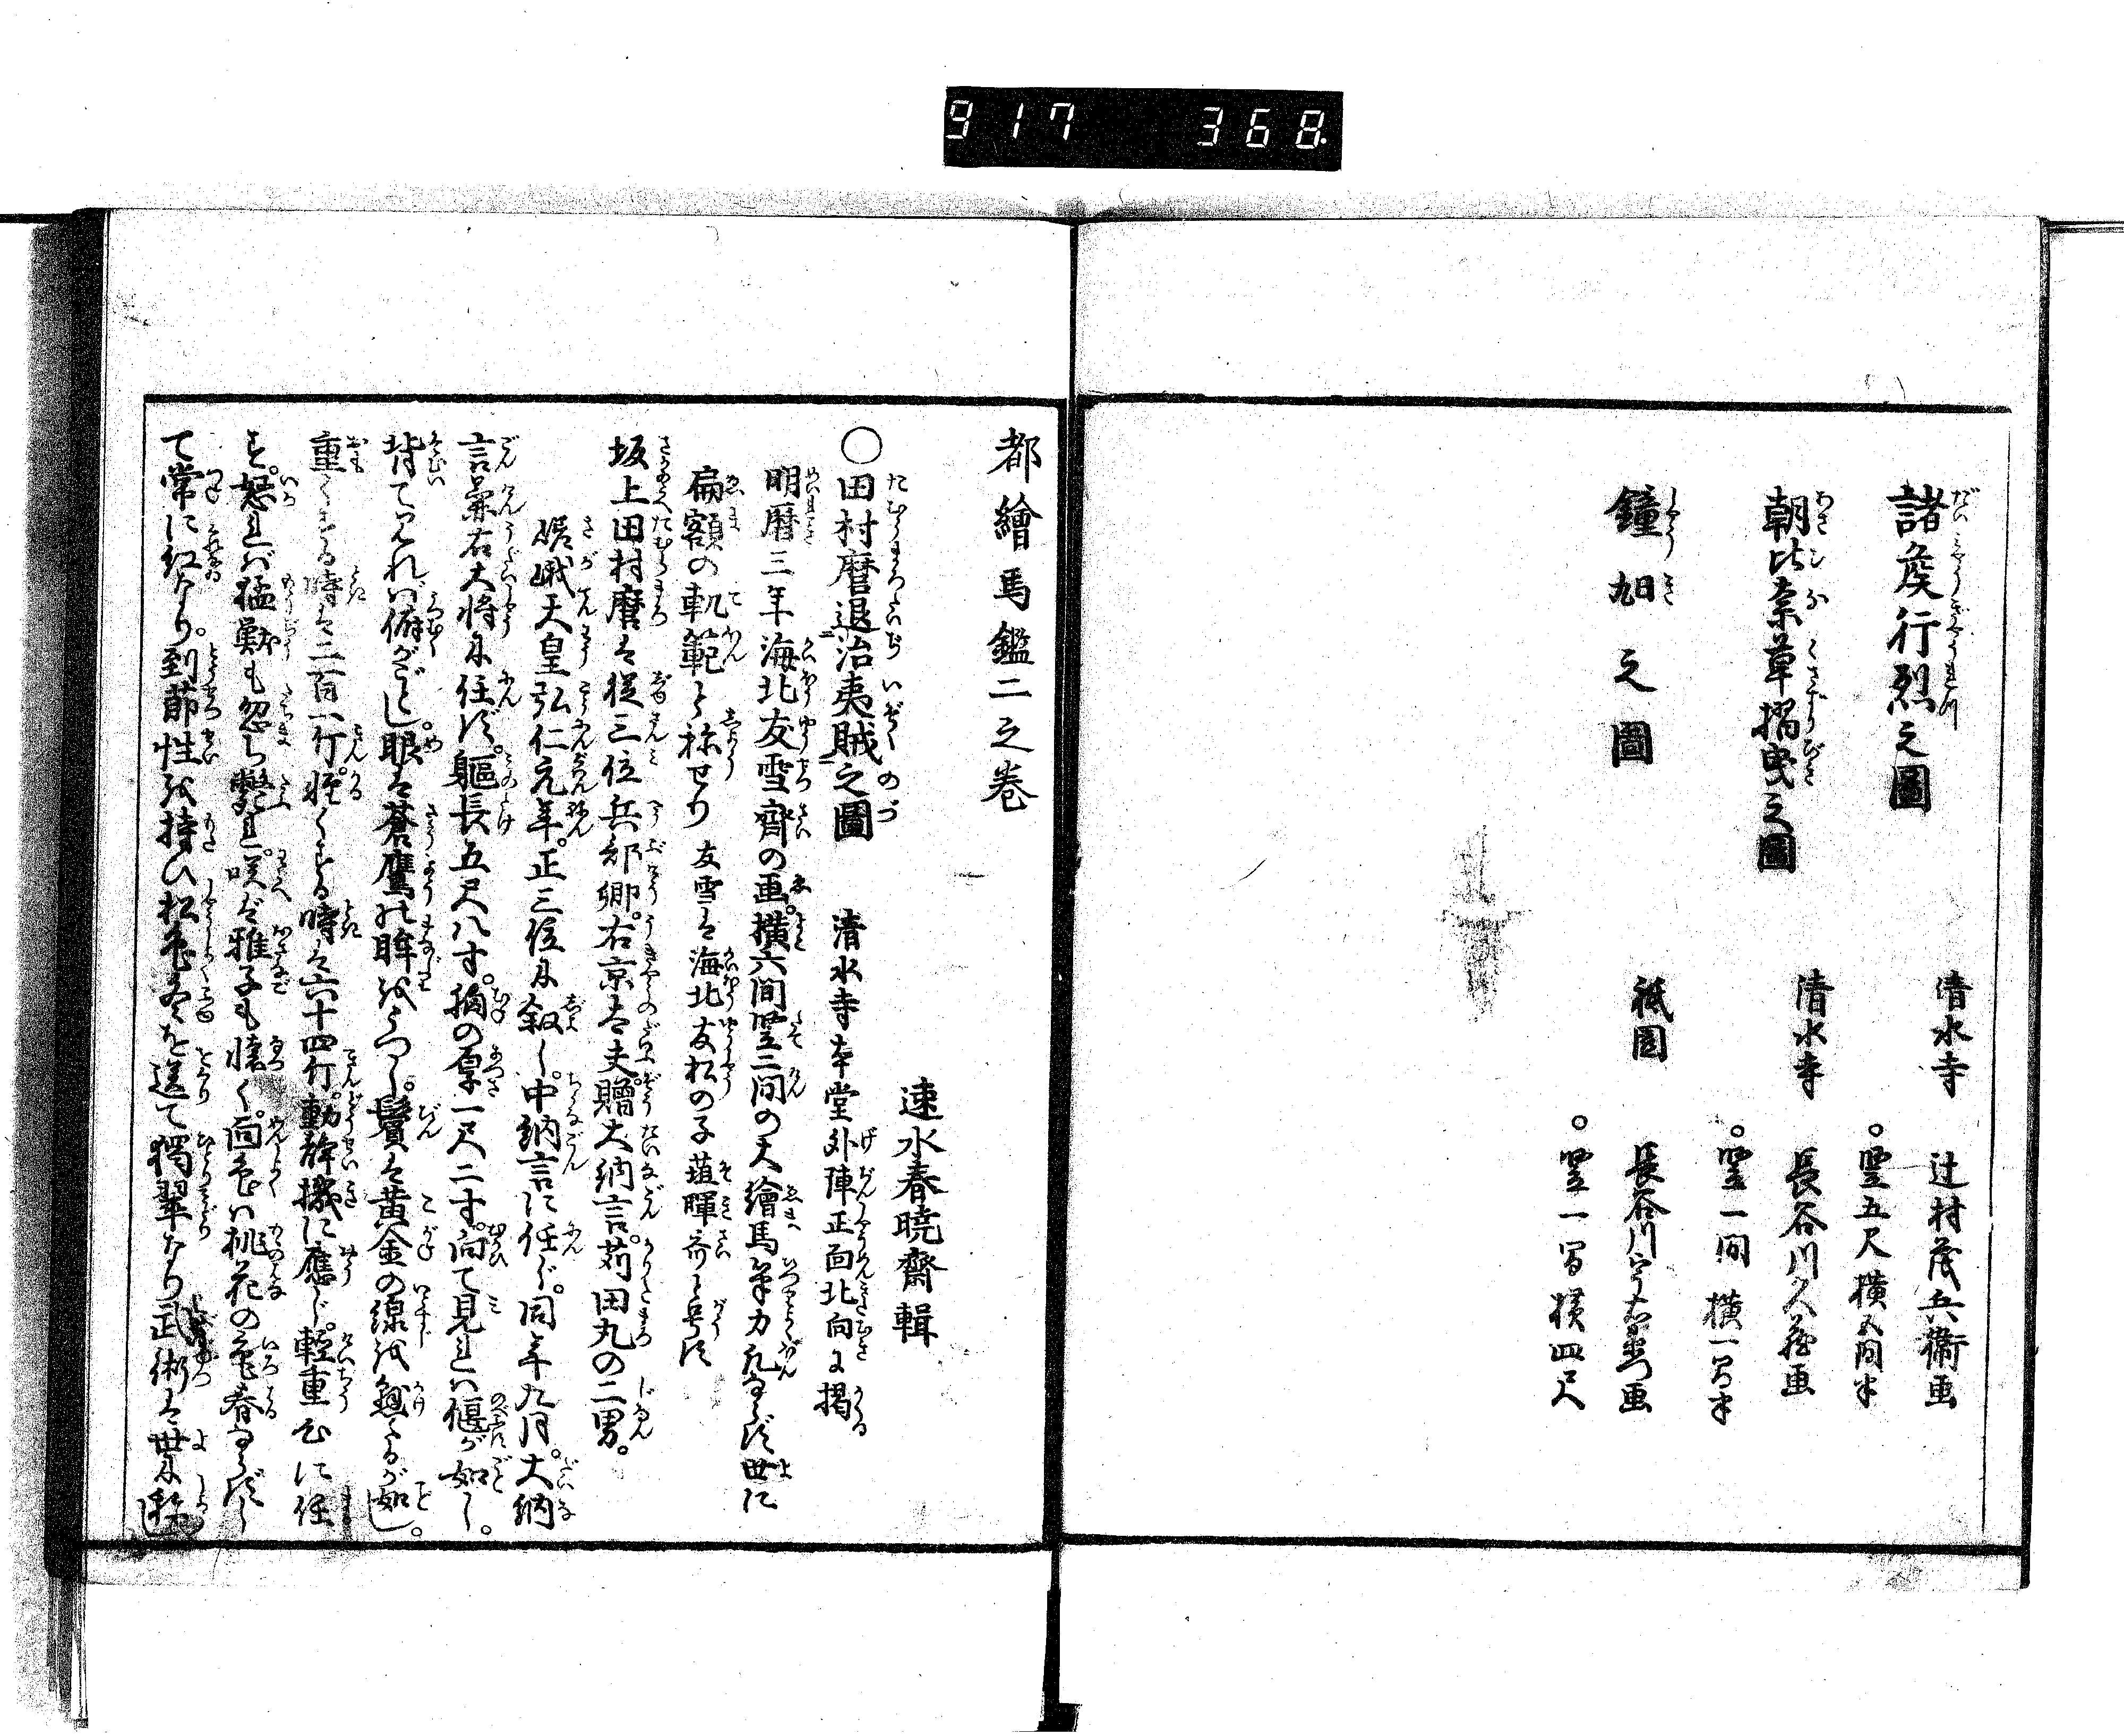 917 368
諸矦行烈之圖
清水寺 辻村茂兵衞画
○竪五尺横五間半
朝比奈草摺曳之圖
清水寺 長谷川久蔵画
○竪一間 横一間半
鐘旭之圖
祇園 長谷川 画
○竪一間横四尺
都繪馬鑑二之巻
速水春曉齋輯
○田村麿退治夷賊之圖 清水寺本堂外陣正面北向に掲
明暦三年海北友雪齊の画。横六間竪三間の大繪馬筆力凡ならず世に
扁額の軌範と称せり 友雪は海北友松の子 暉斎と号す
坂上田村麿は従三位兵部卿。右京大夫贈大納言。苅田丸の二男。
嵯峨天皇弘仁元年。正三位に叙し。中納言に任ず。同年九月。大納
言兼右大将に任ず。軀長五尺八寸。胸の厚一尺二寸。向て見れば偃が如し。
背てみれば俯がごとし。眼は蒼鷹の眸をうつし。鬢は黄金の線を繋たるが如し。
重くする時は二百一斤。軽くする時は六十四斤。動静機に應じ。軽重心に任
す。怒れば猛獣も忽ち斃れ。咲ば稚子も懐く。面色は桃花の色春ならずし
て常に紅なり。到莭性を持ひ松色冬を送て獨翠なり武術は世に称し